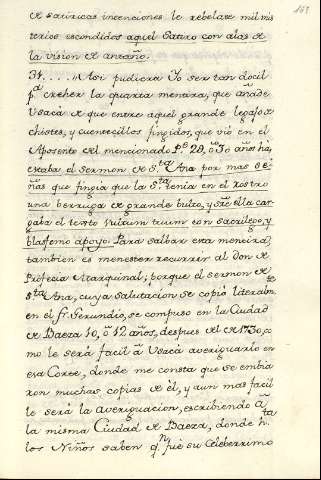 de satiricas intenciones le rebelase mil mis
terios escondidos aquel Satiro con alas de
la vision de antaño.
31.... A los pudiera Yo ser tan docil
pa. creher la quarta mentira, que añade
Usaca de que entre aquel grande legajo de
chistes, y cuentecillos fingidos, que vió en el
Aposento del mencionado Pe. 29, ó 30 años há,
estaba el sermon de Sta. Ana por mas se
ñas que fingia que la Sta. tenia en el rostro
una berruga de grande bulto, y sre. ella car
gaba el texto Vultum tuum con sacrilego, y
blasfemo apoyo. Para salbar esta mentira,
tambien es menester recurrir al don de
Profecia Marquinal; porque el sermon de
Sta. Ana, cuya salutacion se copió literalmte.
en el fr. Gerundio, se compuso en la Ciudad
de Baeza 10, ó 12 años, despues del de 1730, co
mo le será facil á Usaca averiguarlo en
esa Corte, donde me consta que se embia
ron muchas copias de él, y aun mas facil
le será la averiguacion, escribiendo á
la misma Ciudad de Baeza, donde hta.
los Niños saben qn. fue su Celeberrimo